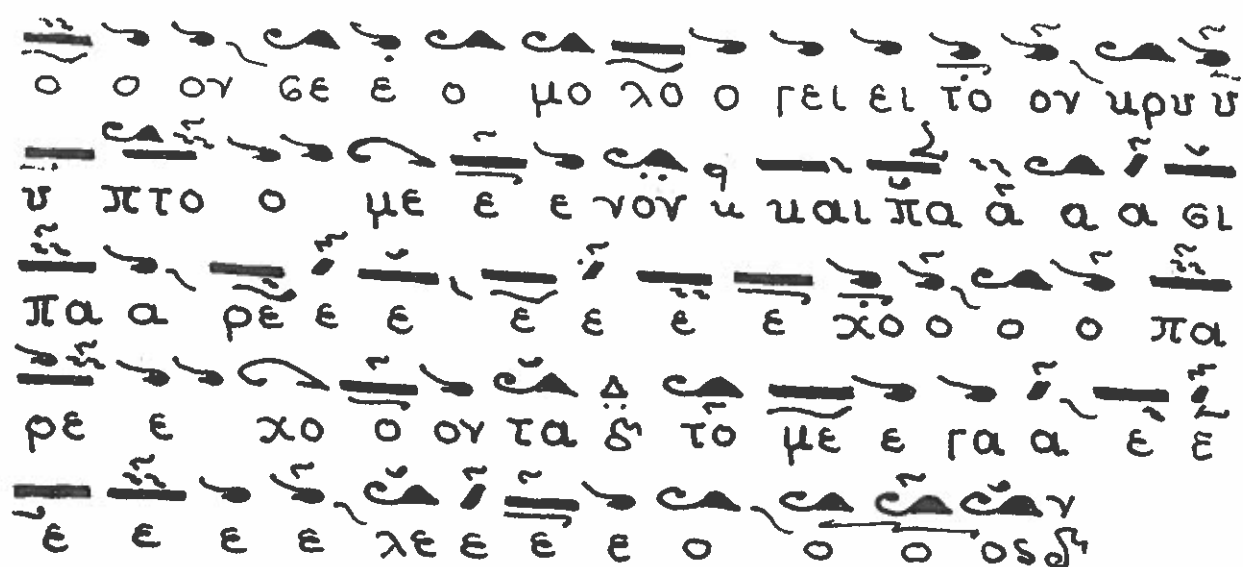 ο ο ον σε ε ο μο λο ο γει ει το ον κρυ υ
υ πτο ο με ε ε νον κ και πα α α α σι
πα α ρε ε ε ε ε ε ε χο ο ο ο πα
ρε ε χο ο ον τα δι το με ε γα α ε ε
ε ε ε ε λε ε ε ε ο ο ο ος δι